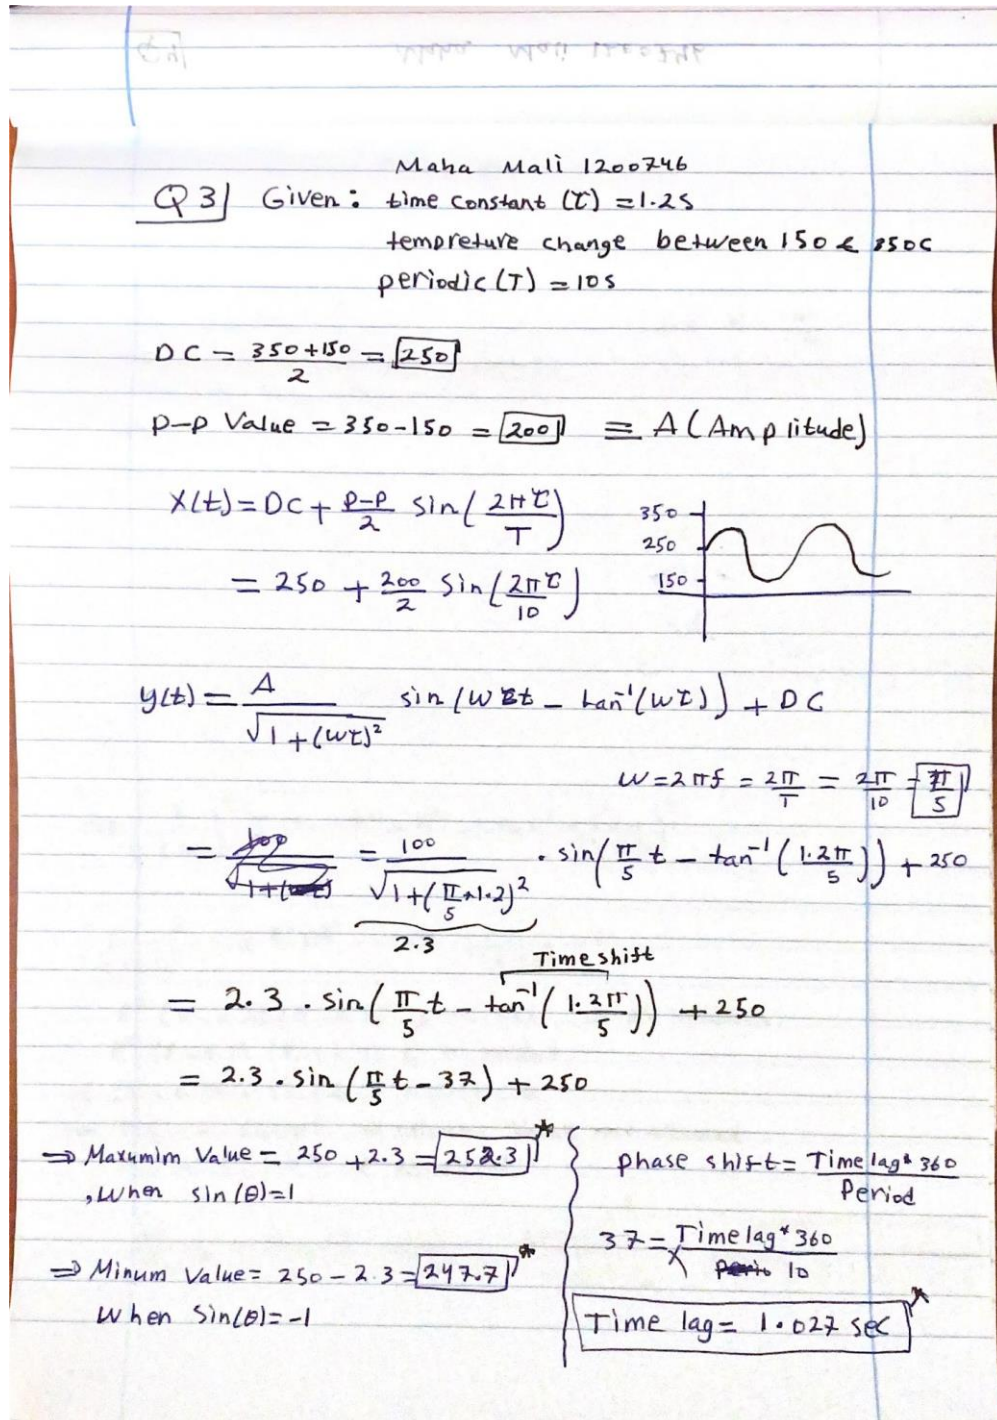 Maha Mali 1200746
Q3 Given: time constant (τ) = 1.2s
tempreture change between 150 & 350c
periodic (T) = 10s
DC = (350+150)/2 = 250
P-P Value = 350-150 = 200 ≡ A (Amplitude)
X(t) = DC + (P-P)/2 sin(2πτ/T)
350
250
150
= 250 + 200/2 sin(2πτ/10)
y(t) = A/√(1+(wτ)²) sin(wt - tan⁻¹(wτ)) + DC
w = 2πf = 2π/T = 2π/10 = π/5
= 100/√(1+(π/5*1.2)²) . sin(π/5 t - tan⁻¹(1.2π/5)) + 250
2.3
Time shift
= 2.3 . sin(π/5 t - tan⁻¹(1.2π/5)) + 250
= 2.3 . sin(π/5 t - 37) + 250
⇒ Maxumim Value = 250 + 2.3 = 252.3 *
, when sin(θ)=1
⇒ Minum Value = 250 - 2.3 = 247.7 *
When Sin(θ)=-1
phase shift = Time lag * 360 / Period
37 = Time lag * 360 / 10
Time lag = 1.027 sec *